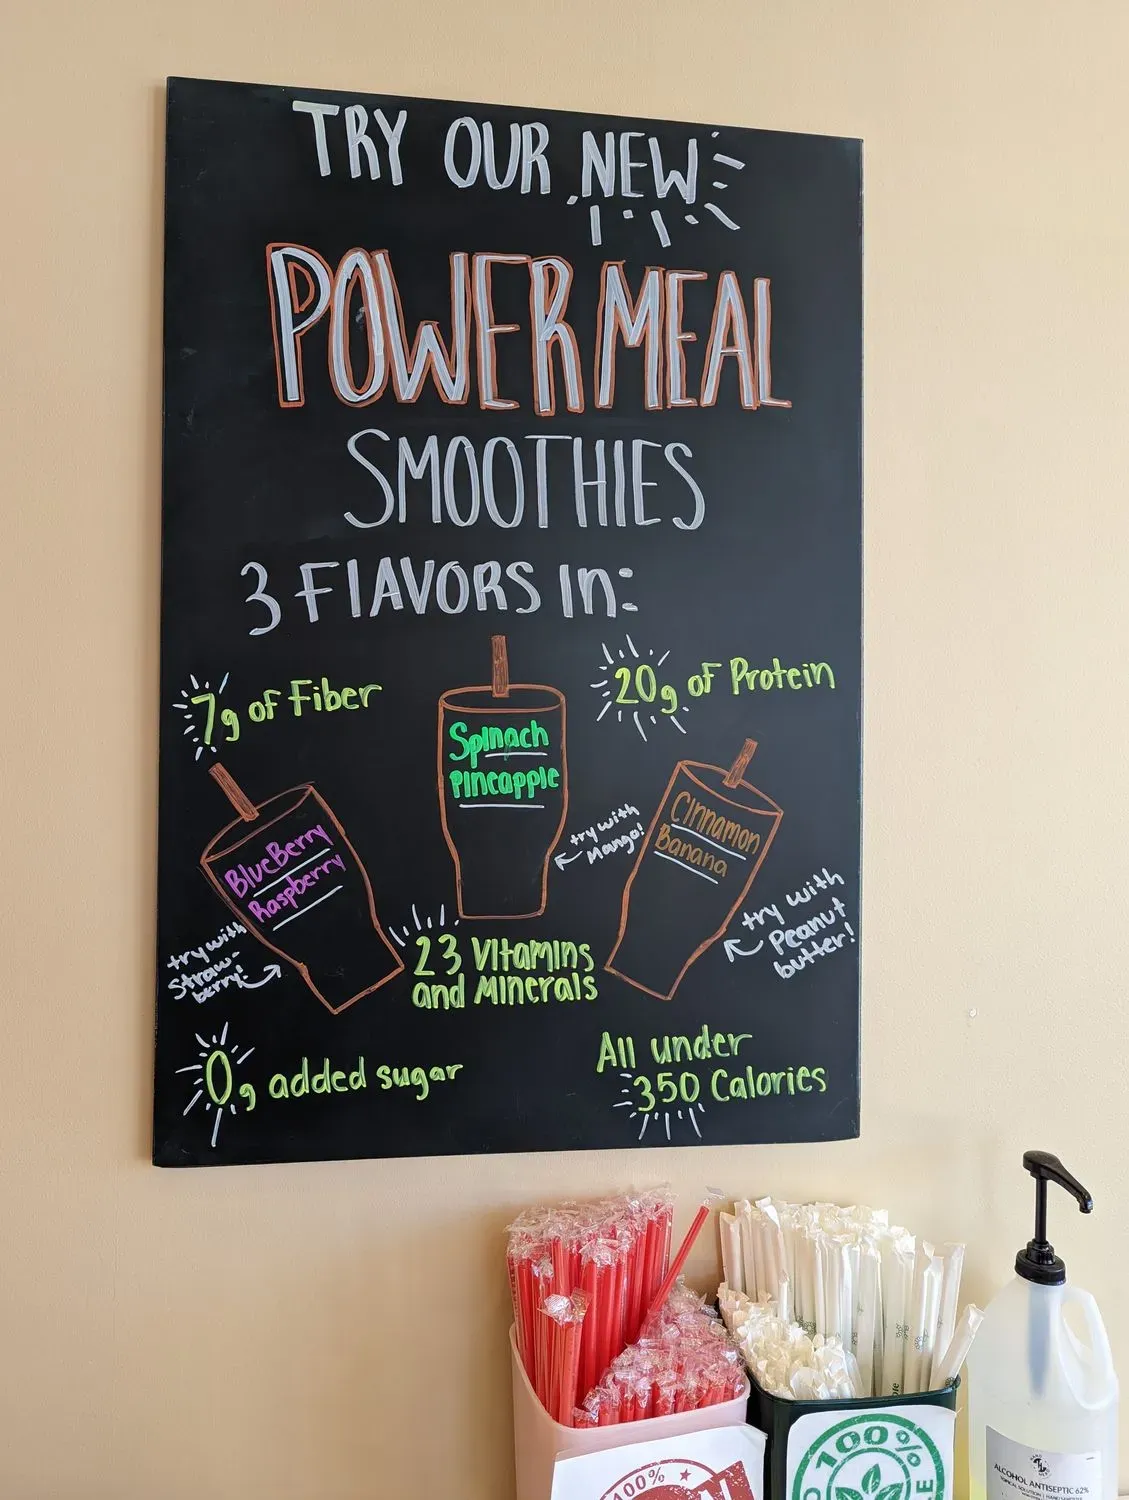 TRY OUR NEW
POWER MEAL
SMOOTHIES
3 FLAVORS In:
7g of Fiber
20g of Protein
Spinach
Pineapple
BlueBerry
Raspberry
Cinnamon
Banana
try with
Mango!
try with
Straw-
berry!
try with
Peanut
butter!
23 Vitamins
and Minerals
0g added sugar
All under
350 Calories
100%
100%
ALCOHOL ANTISEPTIC 62%